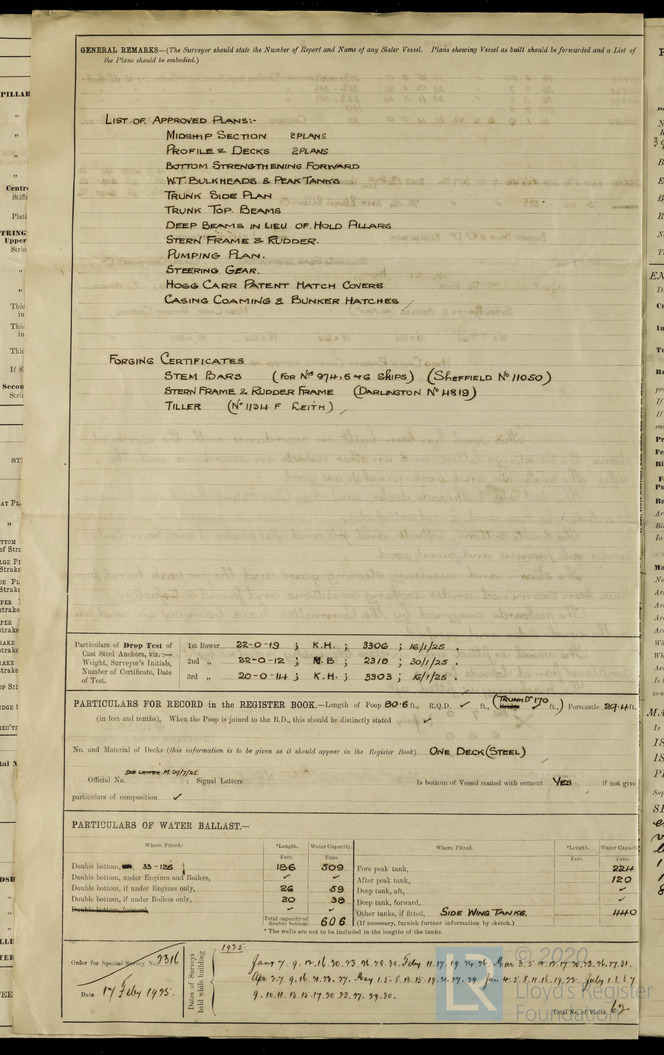 GENERAL REMARKS—(The Surveyor should state the Number of Report and Name of any Sister Vessel. Plans showing Vessel as built should be forwarded and a List of
the Plans should be embodied.)
LIST OF APPROVED PLANS:-
MIDSHIP SECTION 2 PLANS
PROFILE & DECKS 2 PLANS
BOTTOM STRENGTHENING FORWARD
W.T. BULKHEADS & PEAK TANKS
TRUNK SIDE PLAN
TRUNK TOP BEAMS
DEEP BEAMS IN LIEU OF HOLD PILLARS
STERN FRAME & RUDDER.
PUMPING PLAN.
STEERING GEAR.
HOGG CARR PATENT HATCH COVERS
CASING COAMING & BUNKER HATCHES
FORGING CERTIFICATES
STEM BARS (FOR Nos 974, 5 & 6 SHIPS) (SHEFFIELD No 11050)
STERN FRAME & RUDDER FRAME (DARLINGTON No 4819)
TILLER (No 1134 F LEITH)
Particulars of Drop Test of
Cast Steel Anchors, viz.:—
Weight, Surveyor's Initials,
Number of Certificate, Date
of Test.
1st Bower 22-0-19 ; K.H. ; 3306 ; 16/1/25 .
2nd „ 22-0-12 ; B ; 2318 ; 30/1/25 .
3rd „ 20-0-14 ; K.H. ; 3303 ; 16/1/25 .
PARTICULARS FOR RECORD in the REGISTER BOOK.—Length of Poop 80.6 ft., R.Q.D. ✓ ft., (TRUNK Dk 170 Bridge ✓ ft.,) Forecastle 29.4 ft.
(in feet and tenths). When the Poop is joined to the B.D., this should be distinctly stated ✓
No. and Material of Decks (this information is to be given as it should appear in the Register Book) ONE DECK (STEEL)
SEE LETTER M. 29/7/25.
Official No. ; Signal Letters Is bottom of Vessel coated with cement YES if not give
particulars of composition ✓
PARTICULARS OF WATER BALLAST.—
Where Fitted. *Length. Water Capacity. Where Fitted. *Length. Water Capacity
Feet. Tons. Feet. Tons.
Double bottom, 33-126 186 509 Fore peak tank, 224
Double bottom, under Engines and Boilers, ✓ ✓ After peak tank, 120
Double bottom, if under Engines only, 26 59 Deep tank, aft, ✓
Double bottom, if under Boilers only, 20 38 Deep tank, forward, ✓
Double bottom, forward, ✓ ✓ Other tanks, if fitted, SIDE WING TANKS. 440
Total capacity of double bottom 606 (If necessary, furnish further information by sketch.)
* The wells are not to be included in the lengths of the tanks.
Order for Special Survey No. 2316
Date 17 Feby 1925.
Dates of Surveys
held while building
1925.
Total No. of Visits 62
© 2020
Lloyd's Register
Foundation
LR